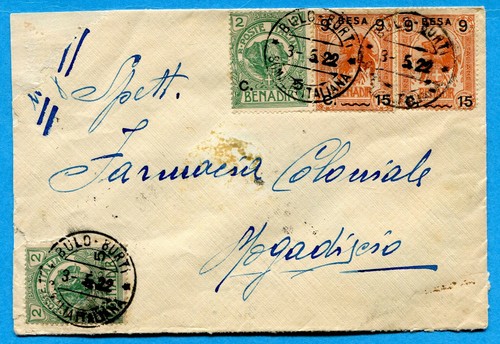 2
POSTE
C. 5
BENADIR
BESA
9 9
C. 15
BENADIR
9 BESA 9
15
BULO-BURTI
3-5.22
BULO-BURTI
3-5.22
ITALIANA
Spett.
Farmacia Coloniale
Mogadiscio
2 2
BULO-BURTI
3-5.22
ITALIANA